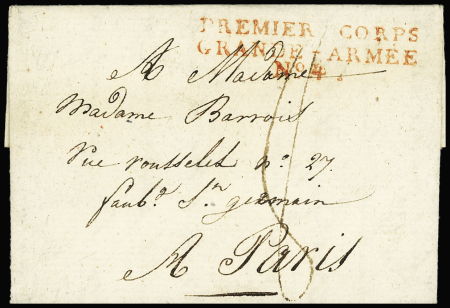 PREMIER CORPS
GRANDE-ARMÉE
No. 4.
A Madame
Madame Barrois
Rue rousselet no. 27.
faubg. St. germain
A Paris